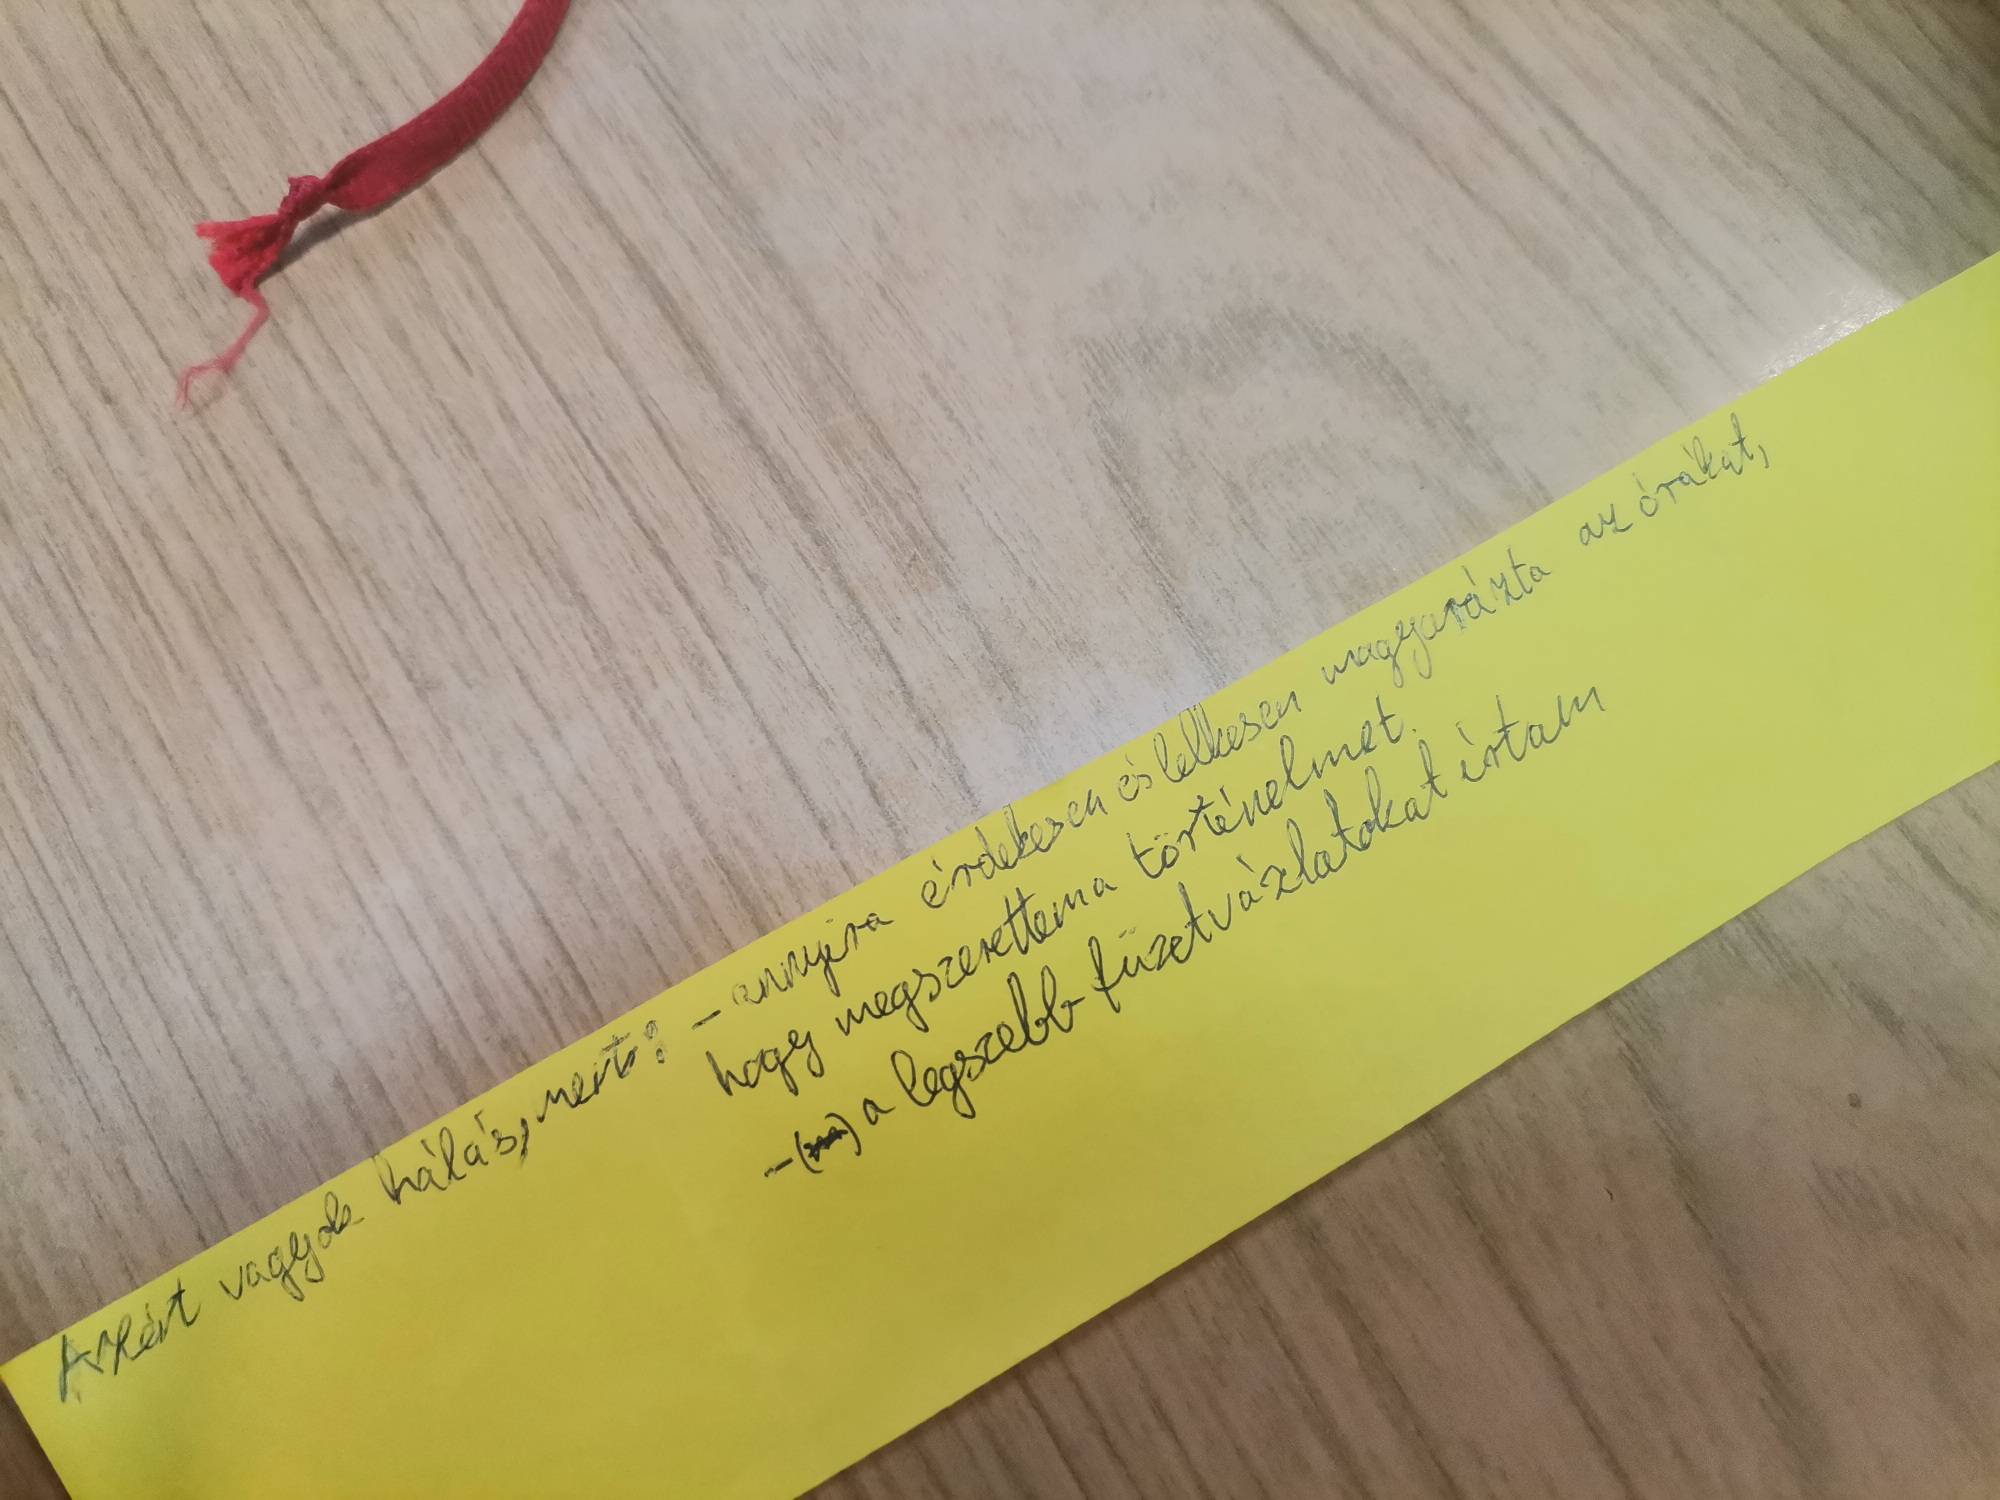 Azért vagyok hálás, mert: - annyira érdekesen és lelkesen magyarázta az órákat,
hogy megszerettem a történelmet.
- a legszebb füzetvázlatokat írtam